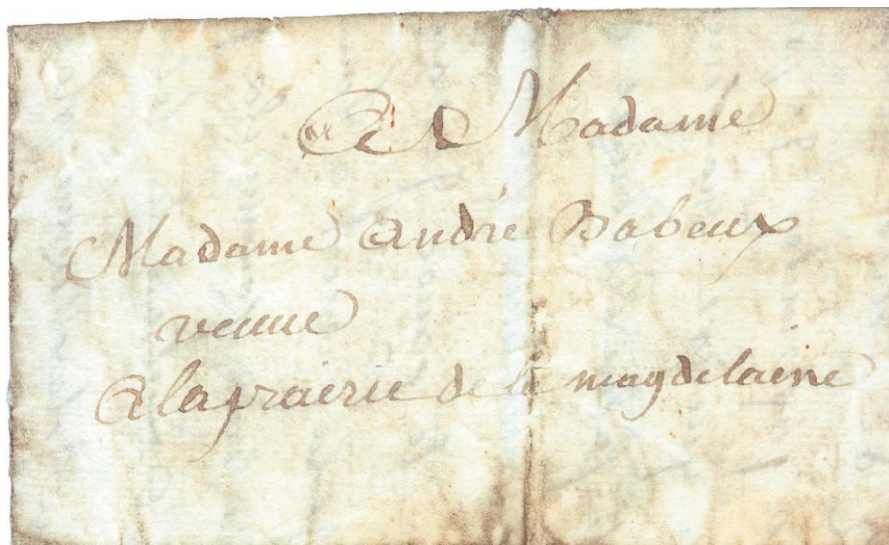 A Madame
Madame andré Babeux
veuue
A laprairie de la magdelaine